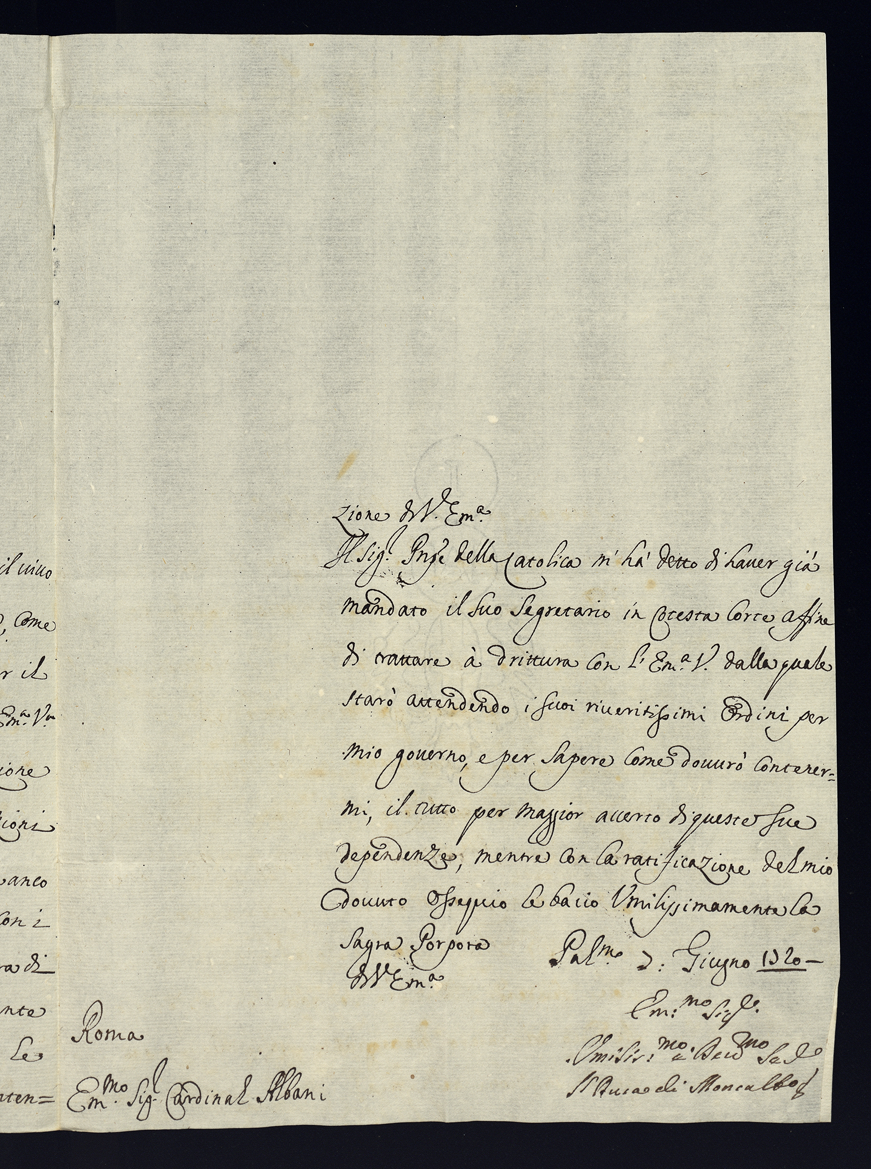 il vivo
, come
r il
Em.ª V.ª
ione
ioni
anco
con i
ra di
nte
Le
ten=
zione di V.ª Em.ª
Il Sig.r Pnpe della Catolica m'hà detto di haver già
mandato il suo Segretario in cotesta Corte affine
di trattare à drittura con l'Em.ª V.ª dalla quale
starò attendendo i suoi riveritissimi Ordini per
mio governo, e per sapere come dovrò contener=
mi, il tutto per maggior accerto di queste sue
dependenze, mentre con la ratificazione del mio
dovuto Ossequio le bacio Vmilissimamente la
Sagra Porpora
di V. Em.ª
Pal.mo 7: Giugno 1720 –
Em.mo Sig.re
Vmiliss.mo e Dev.mo Se.re
Il Duca di Moncalbo
Roma
Em.mo Sig.r Cardinal Albani